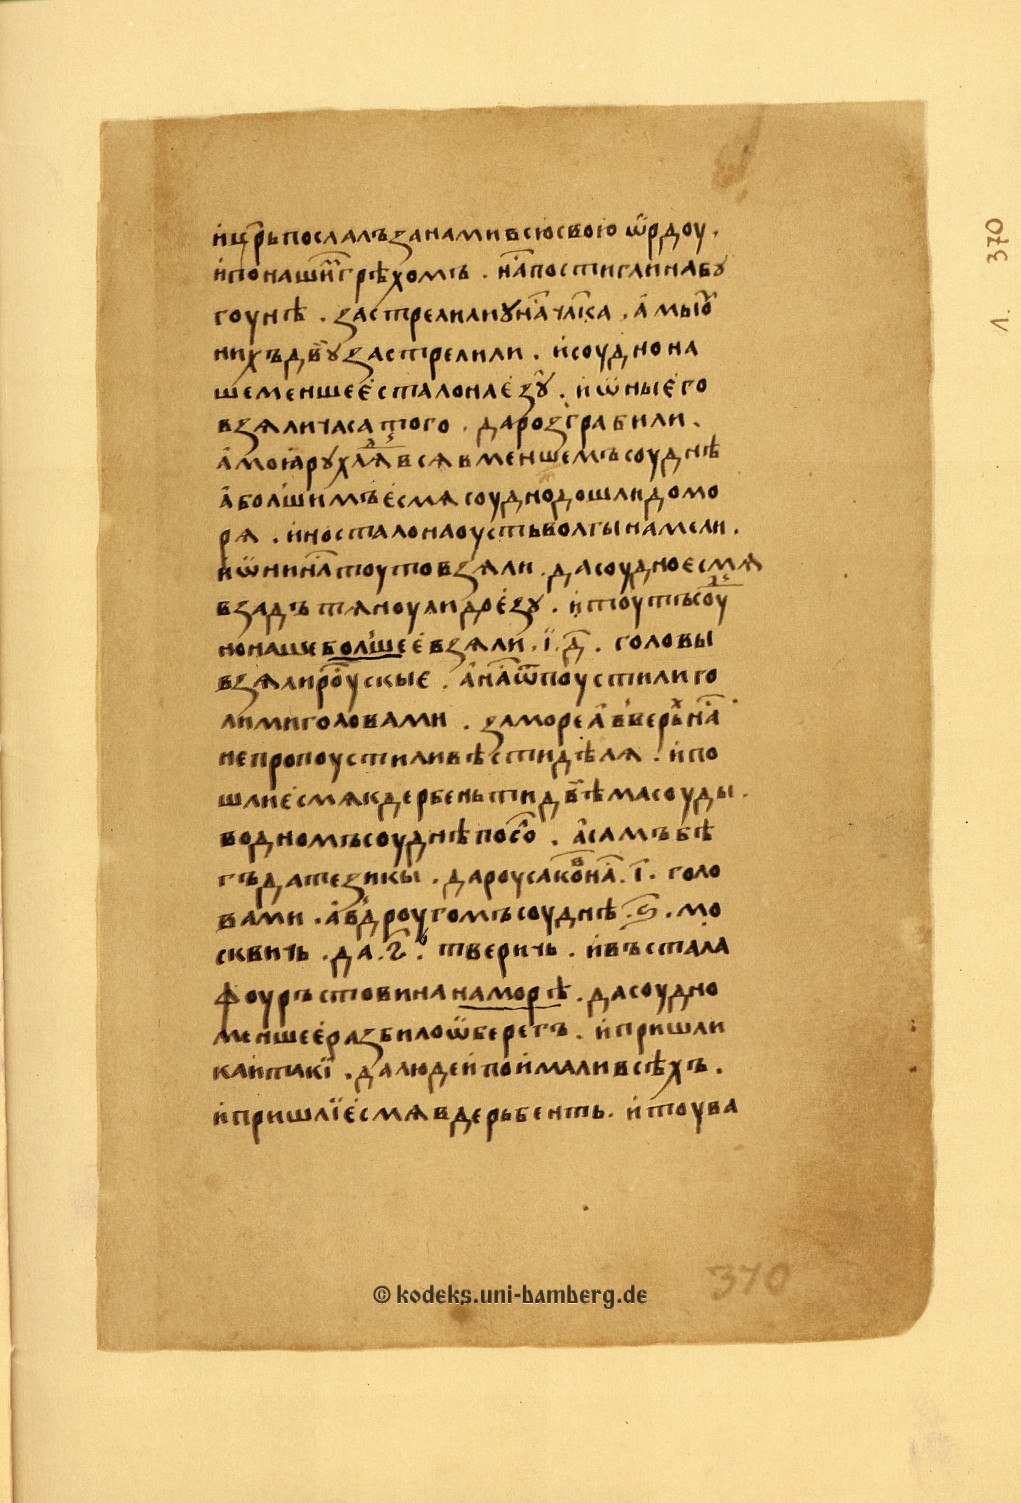 и҆ цр҃ь послалъ за нами всю свою ѡ҆рдоу .
и҆ по наши҆ грѣхомъ . на҆ постигли на бу
гоунѣ . застрелили ꙋ на҆ чл҃ка , а҆ мы ꙋ
нихъ двꙋ застрелили . и҆ соудно на
ше меншее є҆ стало на є҆зꙋ . и҆ ѡ҆ны є҆го
взѧли часа того . да розграбили .
а҆ моꙗ рухлѧ всѧ в меншемъ соуднѣ
а҆ болшимъ є҆смѧ соудно дошли до мо
рѧ . и҆но стало на оусть волгы на мели .
и҆ ѡ҆ни на҆ тоуто взѧли . да соудно є҆смѧ
взадъ тѧноули до є҆зу . и҆ тоутъ соу
но наше болшее є҆ взѧли . і҆ . д҃ . головы
взѧли роускые . а҆ на҆ ѿпоустили го
лими головами . за море а҆ вверьх на҆
не пропоустили вѣсти дѣлѧ . и҆ по
шли є҆смѧ к дербеньти двѣма соуды .
в одномъ соуднѣ посо҆ . а҆самъ бѣ
гъ да тезикы . да роусако҆в на҆ . і҃ . голо
вами . а҆ в дроугомъ соуднѣ . ѕ҃ . мо
сквичь . да . г҃ . тверичь . и҆ въстала
фоуръстовина на морѣ . да соудно
меншее є҆ разбило ѡ҆ берегъ . и҆ пришли
каи҆таки҆ . да людеи҆ пои҆мали всѣхъ .
и҆ пришлї є҆смѧ в дерьбенть . и҆ тоу ва
370
л. 370
© kodeks.uni-bamberg.de